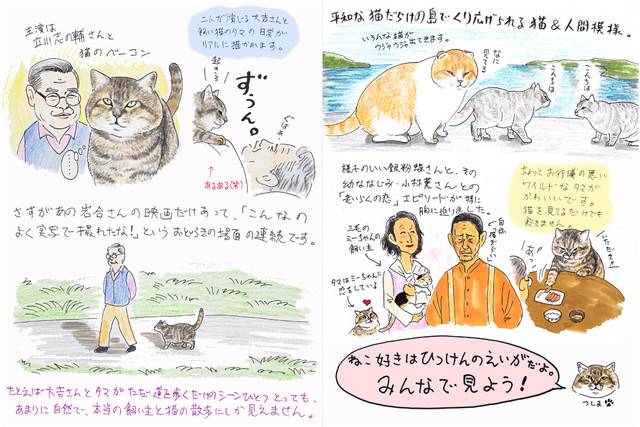 主演は
立川志の輔さんと
猫のベーコン
二人が演じる大吉さんと
飼い猫のタマの日常が
リアルに描かれます。
起きろ
ずぅん。
ぐはぁ
あるある(笑)
さすがあの岩合さんの映画だけあって、「こんなの
よく実写で撮れたな!」というおどろきの場面の連続です。
たとえば大吉さんとタマがただ道を歩くだけのシーンひとつとっても、
あまりに自然で、本当の飼い主と猫の散歩にしか見えません。
平和な猫だらけの島でくり広げられる猫&人間模様。
いろんな猫が
ウジャウジャ出てきます。
なに
見てる
こんちは
こんちは
様子のいい銀粉蝶さんと、その
幼ななじみ・小林薫さんとの
「老いらくの恋」エピソードが特に
胸に迫りました。
三毛の
ミーちゃんの
飼い主
タマはミーちゃんに
恋をしている
ちょっとお行儀の悪い
ワイルドなタマが
かわいいです。
猫を見てるだけでも
飽きません。
あっ
いただきっ
ねこ好きはひっけんのえいがだよ。
みんなで見よう!
つしま